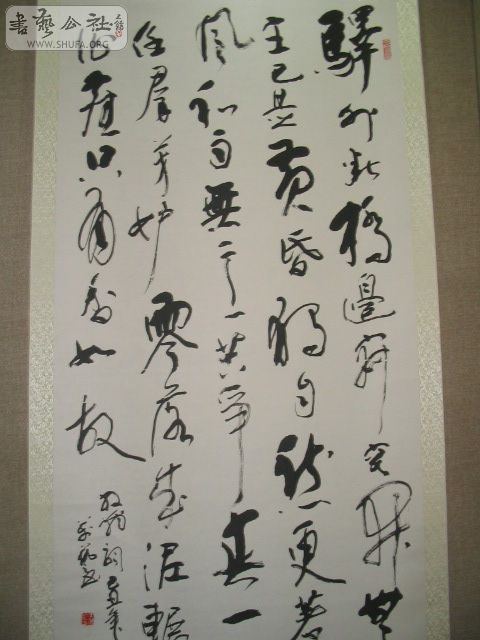 書藝公社
WWW.SHUFA.ORG
驛外斷橋邊寂寞開無
主已是黃昏獨自愁更著
風和雨無意苦爭春一
任群芳妒零落成泥輾
作塵只有香如故